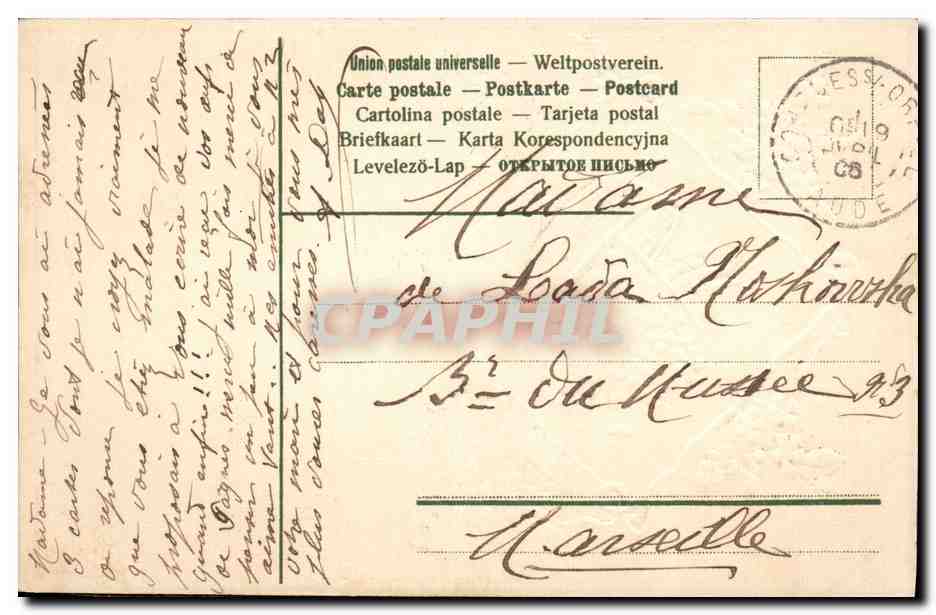 Union postale universelle — Weltpostverein.
Carte postale — Postkarte — Postcard
Cartolina postale — Tarjeta postal
Briefkaart — Karta Korespondencyjna
Levelező-Lap — ОТКРЫТОЕ ПИСЬМО
AUDE
Madame
de Loada Moskowska
Bd du Musée n°3
Marseille
Madame – Je vous ai adressés
3 cartes dont je n'ai jamais
eu reponse je croyez vraiment
que vous étiez malade je me
proposais à vous ecrire de nouveau
quand enfin!! j'ai reçu vos œufs
de Pâques merci mille fois merci de
penser un peu à moi qui vous
aime tant.. Mes amitiés à Mr
votre mari et pour vous mes
plus douces caresses.
CPAPHIL